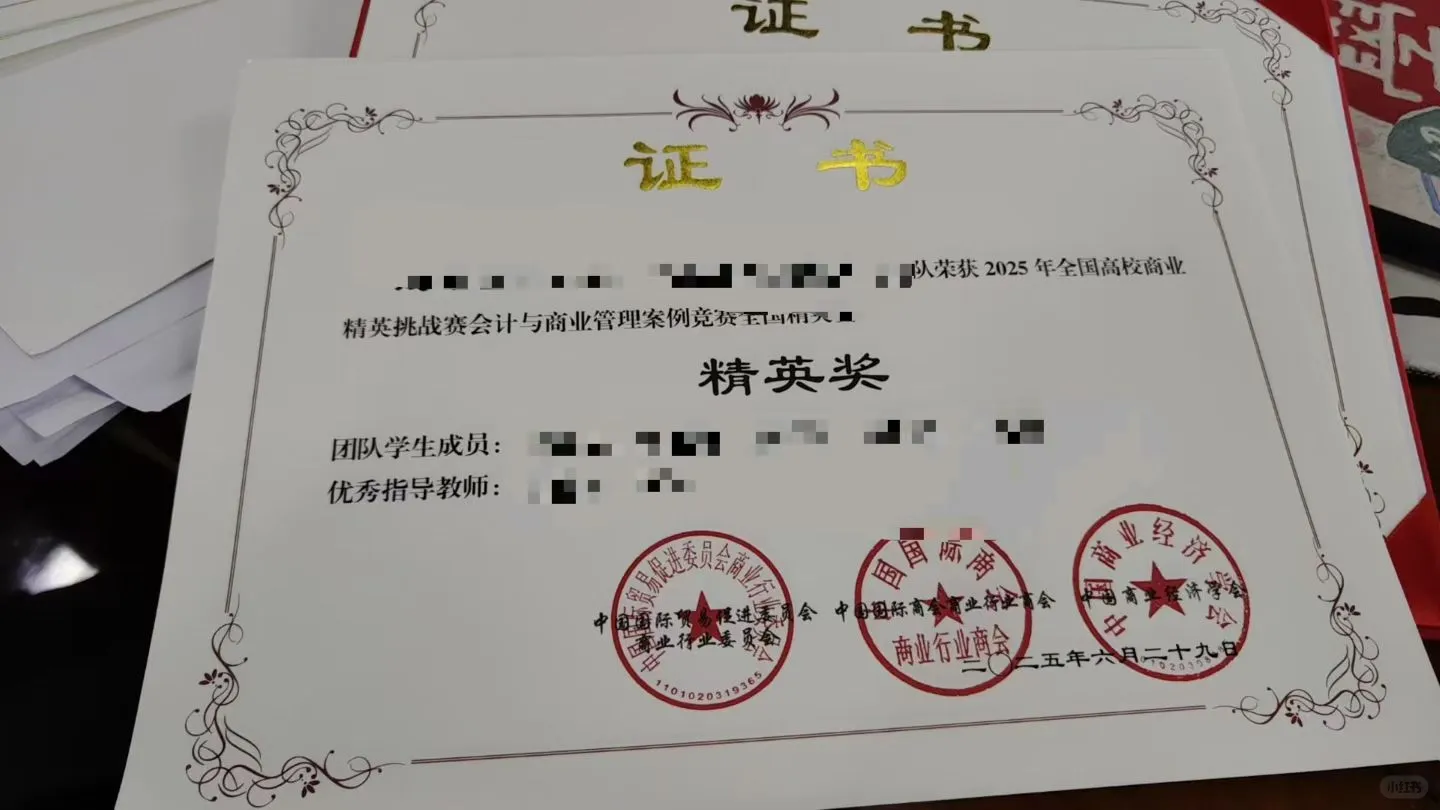 证 书
证 书
队荣获 2025 年全国高校商业
精英挑战赛会计与商业管理案例竞赛全国精英
精英奖
团队学生成员：
优秀指导教师：
中国国际贸易促进委员会商业行业委员会
1101020319365
国国际商
商业行业商会
中国商业经济学会
中国国际贸易促进委员会
商业行业委员会
中国国际商会商业行业商会
中国商业经济学会
二〇二五年六月二十九日
小红书